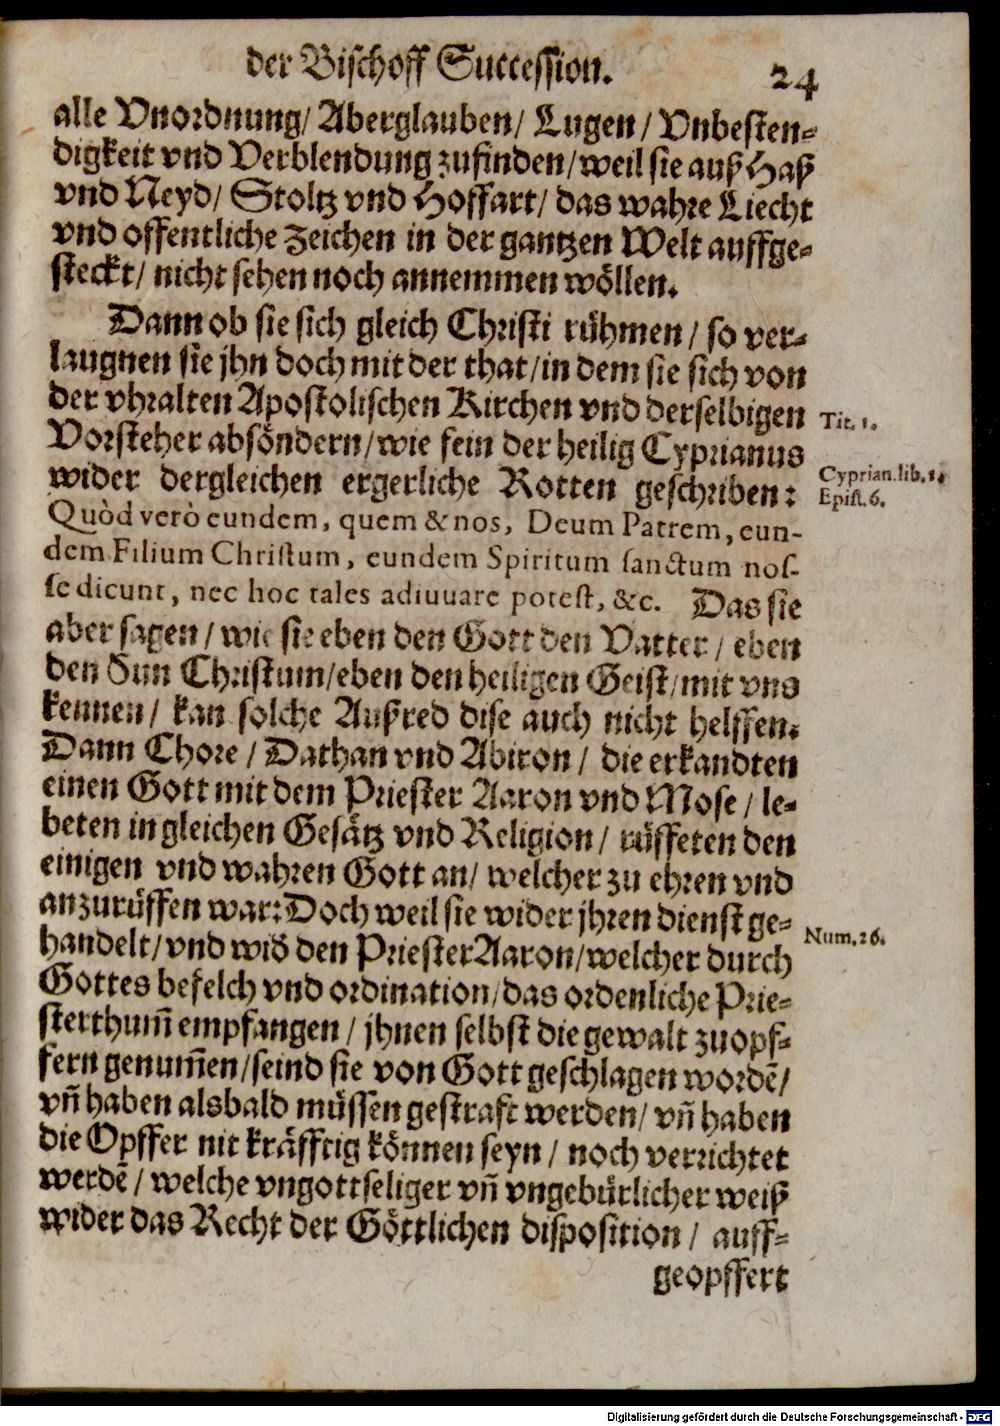 der Bischoff Succession. 24
alle Vnordnung/ Aberglauben/ Lugen/ Vnbesten-
digkeit vnd Verblendung zufinden/ weil sie auß Haß
vnd Neyd/ Stoltz vnd Hoffart/ das wahre Liecht
vnd offentliche zeichen in der gantzen Welt auffge-
steckt/ nicht sehen noch annemmen wöllen.
Dann ob sie sich gleich Christi rühmen/ so ver-
laugnen sie jhn doch mit der that/ in dem sie sich von
der vhralten Apostolischen Kirchen vnd derselbigen
Tit. 1.
Vorsteher absöndern/ wie fein der heilig Cyprianus
wider dergleichen ergerliche Rotten geschriben:
Cyprian. lib. 1.
Epist. 6.
Quòd verò eundem, quem & nos, Deum Patrem, eun-
dem Filium Christum, eundem Spiritum sanctum nos-
se dicunt, nec hoc tales adiuuare potest, &c. Das sie
aber sagen/ wie sie eben den Gott den Vatter/ eben
den Sun Christum/ eben den heiligen Geist/ mit vns
kennen/ kan solche Außred dise auch nicht helffen.
Dann Chore/ Dathan vnd Abiron/ die erkandten
einen Gott mit dem Priester Aaron vnd Mose/ le-
beten in gleichen Gesätz vnd Religion/ rüffeten den
einigen vnd wahren Gott an/ welcher zu ehren vnd
anzurüffen war: Doch weil sie wider jhren dienst ge-
Num. 26.
handelt/ vnd wid̕ den Priester Aaron/ welcher durch
Gottes befelch vnd ordination/ das ordenliche Prie-
sterthum̃ empfangen/ jhnen selbst die gewalt zuopf-
fern genum̃en/ seind sie von Gott geschlagen wordẽ/
vñ haben alsbald müssen gestraft werden/ vñ haben
die Opffer nit kräfftig können seyn/ noch verrichtet
werdẽ/ welche vngottseliger vñ vngebürlicher weiß
wider das Recht der Göttlichen disposition/ auff-
geopffert
Digitalisierung gefördert durch die Deutsche Forschungsgemeinschaft - DFG